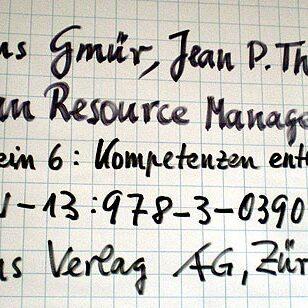 us Gmür, Jean P. Th
n Resource Manage
ein 6: Kompetenzen ent
-13:978-3-0390
us Verlag AG, Zür